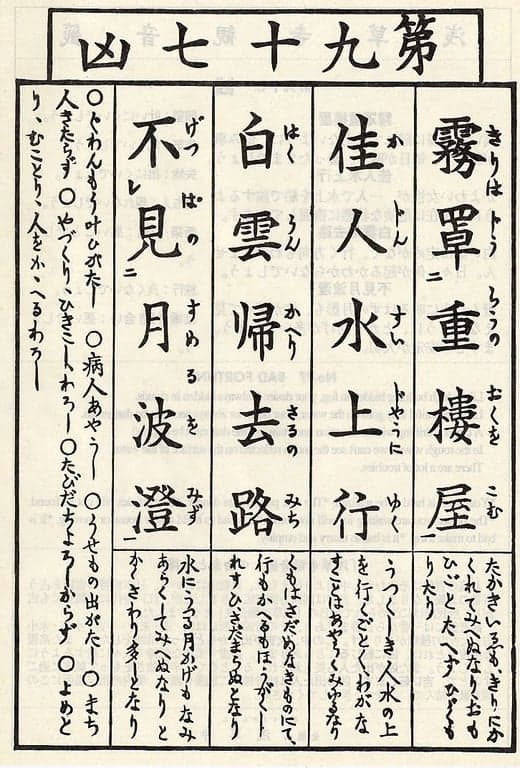 第九十七凶
霧罩重樓屋
きりは とう ろうの おくを こむ
たかきいゑもきりにか
くれてみへぬなりおも
ひごとたへずひがくも
りたり
佳人水上行
か じん すい しやうに ゆく
うつくしき人水の上
を行くごとくわがな
すことはあやうくみゆるなり
白雲帰去路
はく うん かへり さるの みち
くもはさだめなきものにて、
行もかへるもほうがくし
れずひさだまらぬとなり
不レ見ニ月波澄一
げつ ぱの すめる を みず
水にうつる月かげもなみ
あらくしてみへぬなりと
かくさわり多しとなり
〇ぐわんもう叶ひがたし 〇病人あやうし 〇うせもの出がたし 〇まち
人きたらず 〇やづくりひきこしわろし 〇たびだちよろしからず 〇よめと
り、むことり、人をかゝへるわろし